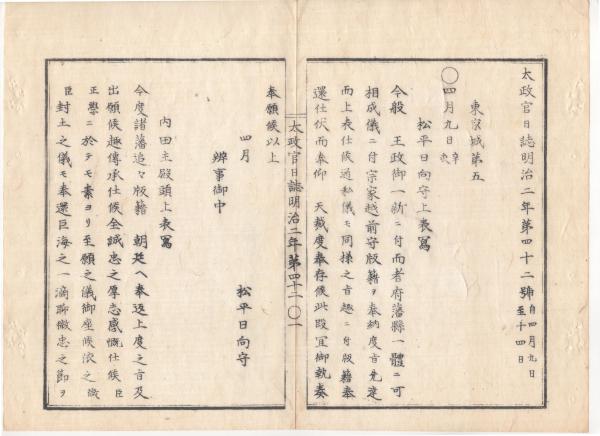 太政官日誌明治二年第四十二號 自四月九日至十四日
東京城第五
○四月九日 辛亥
松平日向守上表寫
今般 王政御一新ニ付而者府藩縣一體ニ可
相成儀ニ付宗家越前守版籍ヲ奉納度旨先達
而上表仕候通私儀モ同様之旨趣ニ付版籍奉
還仕伏而奉仰 天裁度奉存候此段宜御執奏
奉願候以上
四月 松平日向守
辨事御中
内田主殿頭上表寫
今度諸藩追々版籍 朝廷ヘ奉返上度之旨及
出願候趣傳承仕候全誠忠之厚志感慨仕候臣
正學ニ於テモ素ヨリ至願之儀御座候依之微
臣封土之儀モ奉還巨海之一滴聊微忠之節ヲ
太政官日誌明治二年第四十二 ○一